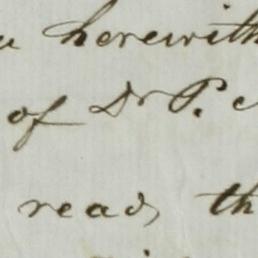 herewith
of Dr P.
read, th